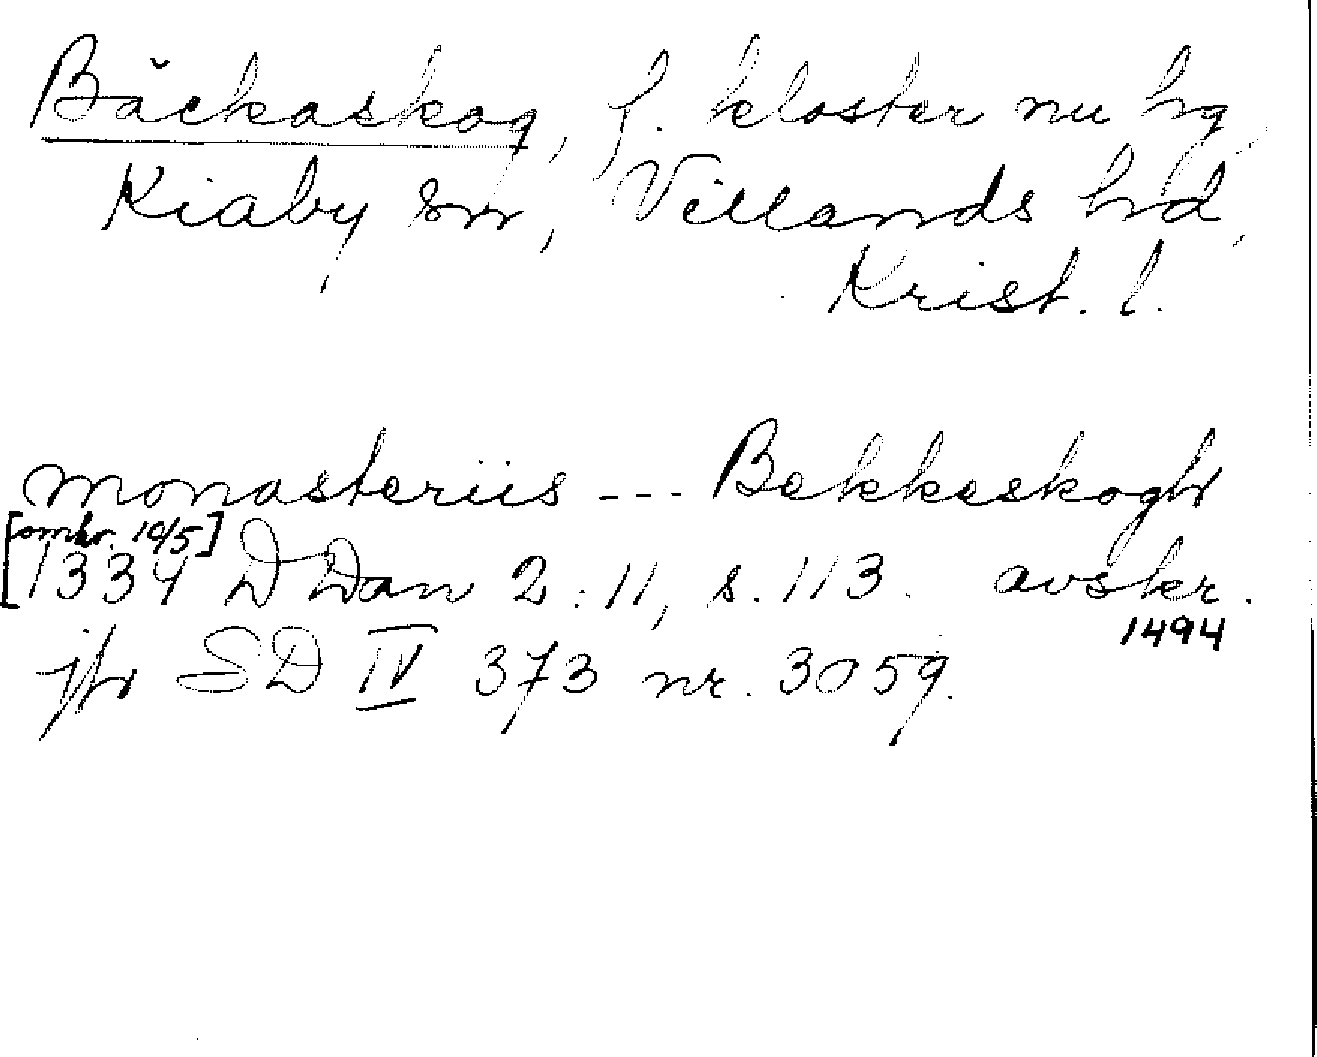 Bäckaskog, f. kloster nu hg,
Kiaby sn, Villands hd,
Krist. l.
monasteriis --- Bekkeskogh
[omkr. 10/5]
[1339 DDan 2:11, s. 113. avskr.
1494
jfr SD IV 373 nr. 3059.